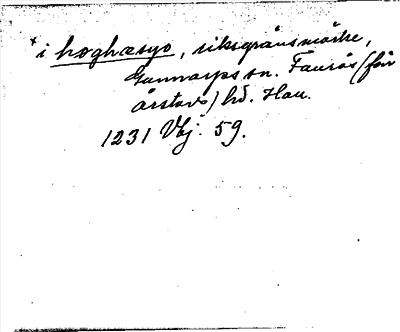 × i hoghæsyo, riksgränsmärke,
Gunnarps sn. Faurås (för
årstads) hd. Hall.
1231 Vbj. 59.